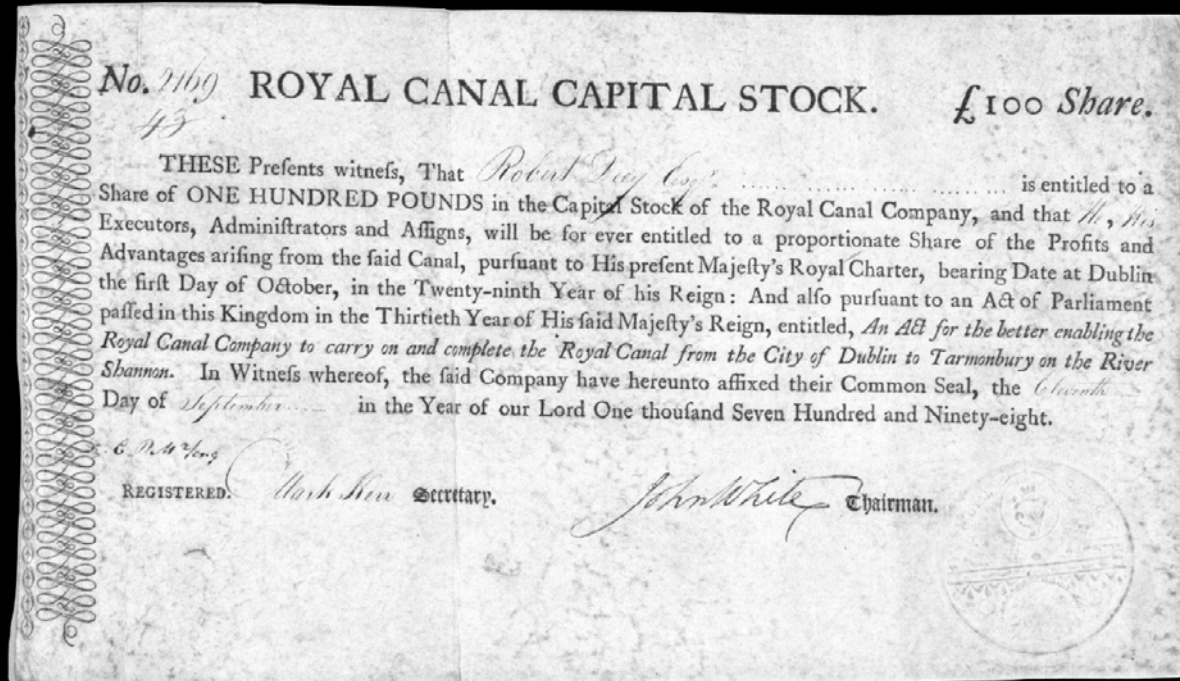 No. 2169 ROYAL CANAL CAPITAL STOCK. £100 Share.
43
THESE Preſents witneſs, That Robert Deey Esqr. is entitled to a
Share of ONE HUNDRED POUNDS in the Capital Stock of the Royal Canal Company, and that He, His
Executors, Adminiſtrators and Aſſigns, will be for ever entitled to a proportionate Share of the Profits and
Advantages ariſing from the ſaid Canal, purſuant to His preſent Majeſty's Royal Charter, bearing Date at Dublin
the firſt Day of October, in the Twenty-ninth Year of his Reign: And alſo purſuant to an Act of Parliament
paſſed in this Kingdom in the Thirtieth Year of His ſaid Majeſty's Reign, entitled, An Act for the better enabling the
Royal Canal Company to carry on and complete the Royal Canal from the City of Dublin to Tarmonbury on the River
Shannon. In Witneſs whereof, the ſaid Company have hereunto affixed their Common Seal, the Eleventh
Day of September in the Year of our Lord One thouſand Seven Hundred and Ninety-eight.
REGISTERED. Mark Kerr Secretary. John White Chairman.